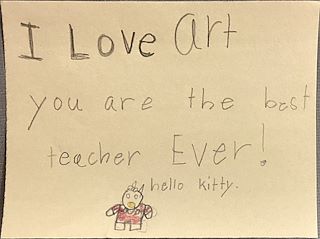 I Love Art
you are the best
teacher Ever!
hello kitty.